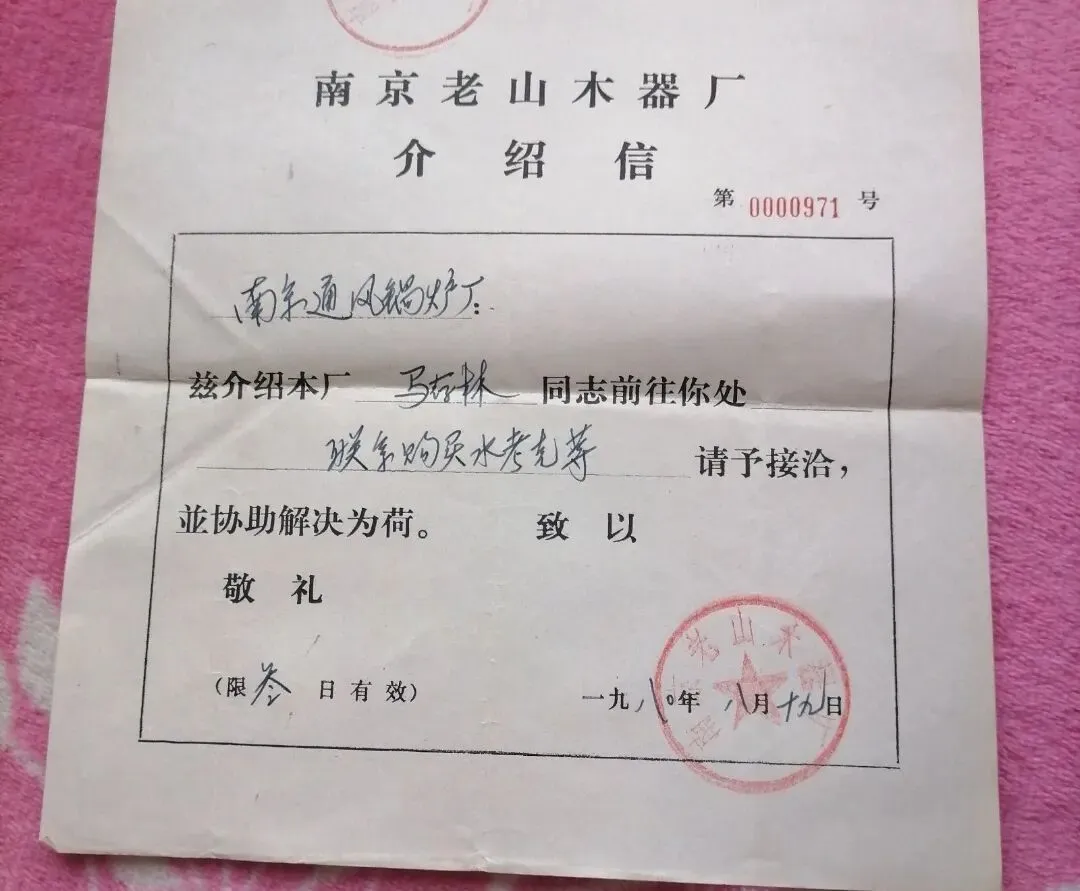 南京老山木器厂
介绍信
第 0000971 号
南京通风锅炉厂:
兹介绍本厂 马存林 同志前往你处
联系购买水考克等 请予接洽,
並协助解决为荷。 致以
敬礼
(限叁日有效) 一九八〇年八月十九日
老山木